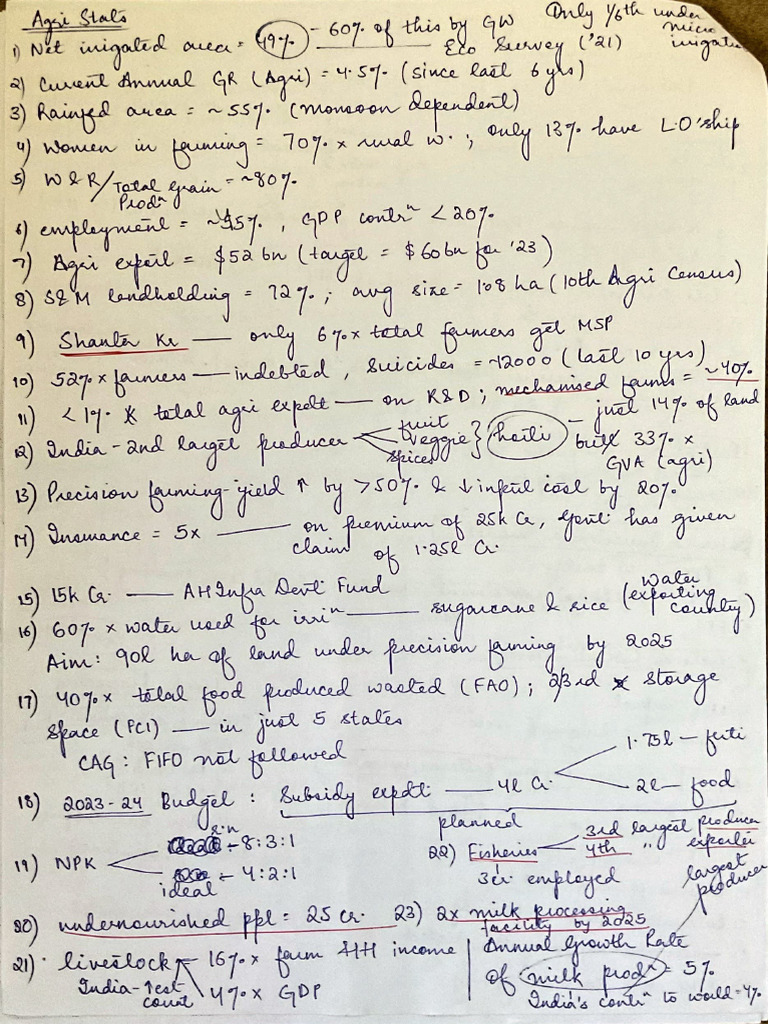 Agri Stats
1) Net irrigated area = 49% - 60% of this by GW Only 1/6th under micro irrigation
Eco Survey ('21)
2) Current Annual GR (Agri) = 4.5% (since last 6 yrs)
3) Rainfed area = ~55% (monsoon dependent)
4) Women in farming = 70% x rural w. ; only 13% have L.O'ship
5) W & R/Total Grain Prodⁿ = ~80%
6) employment = ~45%, GDP contrⁿ < 20%
7) Agri export = $52 bn (target = $60 bn for '23)
8) S&M landholding = 72% ; avg size = 1.08 ha (10th Agri Census)
9) Shanta Kr — only 6% x total farmers get MSP
10) 52% x farmers — indebted, Suicides = ~12000 (last 10 yrs)
11) < 1% x total agri expdt — on R&D ; mechanised farms = ~40%
12) India - 2nd largest producer fruit veggie spices } horti - just 14% of land but 33% x GVA (agri)
13) Precision farming - yield ↑ by >50% & ↓ input cost by 20%
14) Insurance = 5x — on premium of 25k Cr, Govt has given
claim of 1.25l Cr.
15) 15k Cr. — AH Infra Devt Fund
16) 60% x water used for irriⁿ — sugarcane & rice (water exporting country)
Aim: 90l ha of land under precision farming by 2025
17) 40% x total food produced wasted (FAO) ; 2/3rd x storage
space (FCI) — in just 5 states
CAG : FIFO not followed
18) 2023-24 Budget : Subsidy expdt — 4l Cr 1.75l — ferti
2l — food
planned
19) NPK - 8:3:1
- 4:2:1
ideal
20) undernourished ppl = 25 Cr.
21) livestock - 16% x farm HH income
4% x GDP
India - ↑est count
22) Fisheries 3rd largest producer
4th " exporter
3 cr. employed
23) 2x milk processing facility by 2025
largest producer
Annual Growth Rate
of milk prodⁿ = 5%
India's contrⁿ to world = 4%